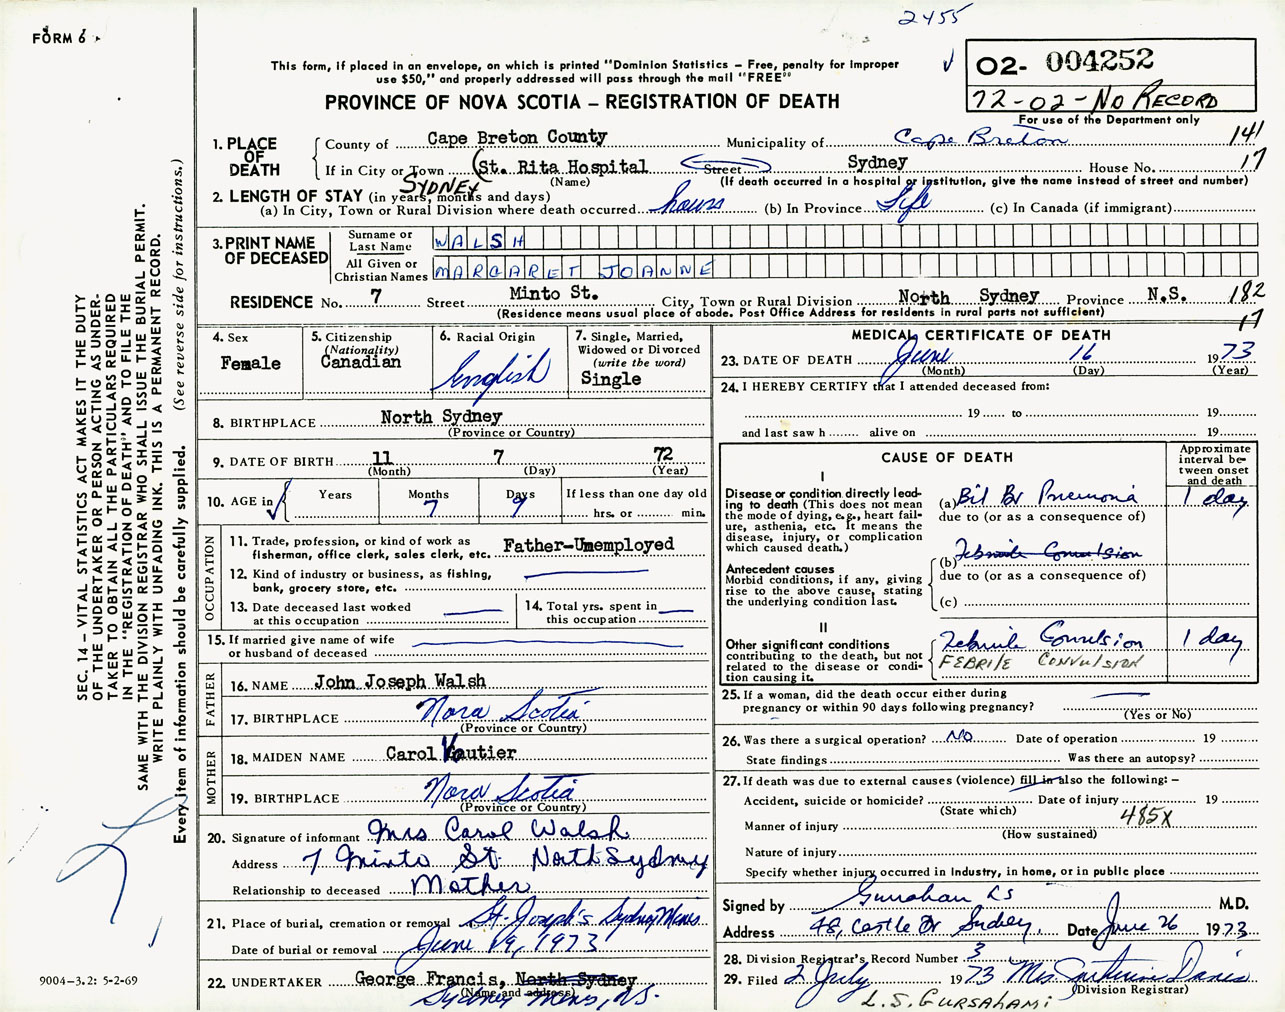 2455
FORM 6
This form, if placed in an envelope, on which is printed "Dominion Statistics – Free, penalty for improper
use $50," and properly addressed will pass through the mail "FREE"
PROVINCE OF NOVA SCOTIA – REGISTRATION OF DEATH
O2- 004252
72-02-No RECORD
For use of the Department only
SEC. 14 – VITAL STATISTICS ACT MAKES IT THE DUTY
OF THE UNDERTAKER OR PERSON ACTING AS UNDER-
TAKER TO OBTAIN ALL THE PARTICULARS REQUIRED
IN THE "REGISTRATION OF DEATH" AND TO FILE THE
SAME WITH THE DIVISION REGISTRAR WHO SHALL ISSUE THE BURIAL PERMIT.
WRITE PLAINLY WITH UNFADING INK. THIS IS A PERMANENT RECORD.
Every item of information should be carefully supplied. (See reverse side for instructions.)
1. PLACE OF DEATH
County of Cape Breton County Municipality of Cape Breton 141
If in City or Town (St. Rita Hospital Street Sydney House No. 17
SYDNEY (Name) (If death occurred in a hospital or institution, give the name instead of street and number)
2. LENGTH OF STAY (in years, months and days)
(a) In City, Town or Rural Division where death occurred hours (b) In Province Life (c) In Canada (if immigrant)
3. PRINT NAME OF DECEASED
Surname or Last Name WALSH
All Given or Christian Names MARGARET JOANNE
RESIDENCE No. 7 Street Minto St. City, Town or Rural Division North Sydney Province N.S. 182
(Residence means usual place of abode. Post Office Address for residents in rural parts not sufficient) 17
4. Sex
Female
5. Citizenship
(Nationality)
Canadian
6. Racial Origin
English
7. Single, Married,
Widowed or Divorced
(write the word)
Single
8. BIRTHPLACE North Sydney
(Province or Country)
9. DATE OF BIRTH 11 7 72
(Month) (Day) (Year)
10. AGE in Years Months Days If less than one day old
7 9 hrs. or min.
OCCUPATION
11. Trade, profession, or kind of work as
fisherman, office clerk, sales clerk, etc. Father-Unemployed
12. Kind of industry or business, as fishing,
bank, grocery store, etc.
13. Date deceased last worked
at this occupation
14. Total yrs. spent in
this occupation
15. If married give name of wife
or husband of deceased
FATHER
16. NAME John Joseph Walsh
17. BIRTHPLACE Nova Scotia
(Province or Country)
MOTHER
18. MAIDEN NAME Carol autier
19. BIRTHPLACE Nova Scotia
(Province or Country)
20. Signature of informant Mrs Carol Walsh
Address 7 Minto St. North Sydney
Relationship to deceased Mother
21. Place of burial, cremation or removal St. Joseph's Sydney Mines
Date of burial or removal June 19, 1973
22. UNDERTAKER George Francis, North Sydney
(Name and address)
Sydney Mines, NS.
9004–3.2: 5-2-69
MEDICAL CERTIFICATE OF DEATH
23. DATE OF DEATH June 16 1973
(Month) (Day) (Year)
24. I HEREBY CERTIFY that I attended deceased from:
19 to 19
and last saw h alive on 19
CAUSE OF DEATH
Approximate interval be-tween onset and death
I
Disease or condition directly lead-
ing to death (This does not
mean the mode of dying, e.g., heart fail-
ure, asthenia, etc. It means the
disease, injury, or complication
which caused death.)
(a) Bil Br Pnemonia 1 day
due to (or as a consequence of)
(b) Febrile Convulsion
due to (or as a consequence of)
(c)
Antecedent causes
Morbid conditions, if any, giving
rise to the above cause, stating
the underlying condition last.
II
Other significant conditions
contributing to the death, but not
related to the disease or condi-
tion causing it.
Febrile Convulsion 1 day
FEBRILE CONVULSION
25. If a woman, did the death occur either during
pregnancy or within 90 days following pregnancy?
(Yes or No)
26. Was there a surgical operation? No Date of operation 19
State findings Was there an autopsy?
27. If death was due to external causes (violence) fill in also the following: –
Accident, suicide or homicide? Date of injury 19
(State which)
Manner of injury 485X
(How sustained)
Nature of injury
Specify whether injury occurred in Industry, in home, or in public place
Signed by Gursahani LS M.D.
Address 48, Castle Dr Sydney. Date June 26 1973
28. Division Registrar's Record Number 3
29. Filed 2 July 1973 Mrs Davis
(Division Registrar)
L.S. GURSAHAMI